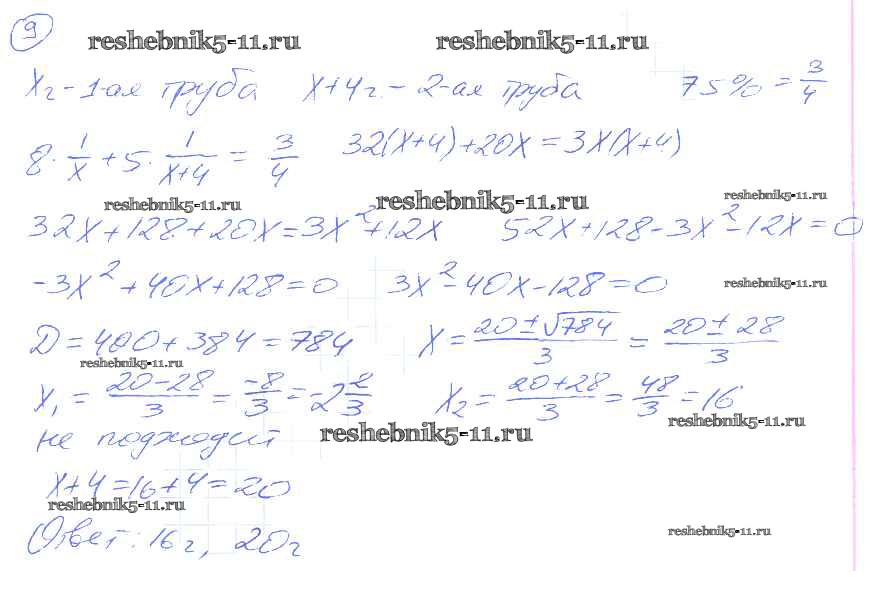 9
reshebnik5-11.ru reshebnik5-11.ru
Xг - 1-ая труба X+4г. - 2-ая труба 75% = 3/4
8 · 1/X + 5 · 1/(X+4) = 3/4 32(X+4)+20X=3X(X+4)
reshebnik5-11.ru reshebnik5-11.ru reshebnik5-11.ru
32X+128+20X=3X²+12X 52X+128-3X²-12X=0
-3X²+40X+128=0 3X²-40X-128=0 reshebnik5-11.ru
D=400+384=784 X = (20±√784)/3 = (20±28)/3
reshebnik5-11.ru
X₁ = (20-28)/3 = -8/3 = -2 2/3 X₂ = (20+28)/3 = 48/3 = 16
reshebnik5-11.ru
не подходит reshebnik5-11.ru
X+4=16+4=20
reshebnik5-11.ru
Ответ: 16г, 20г reshebnik5-11.ru